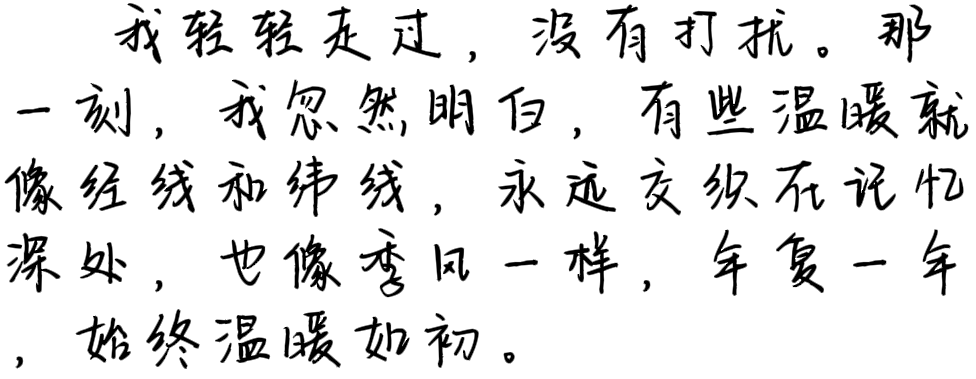 我轻轻走过，没有打扰。那
一刻，我忽然明白，有些温暖就
像经线和纬线，永远交织在记忆
深处，也像季风一样，年复一年
，始终温暖如初。